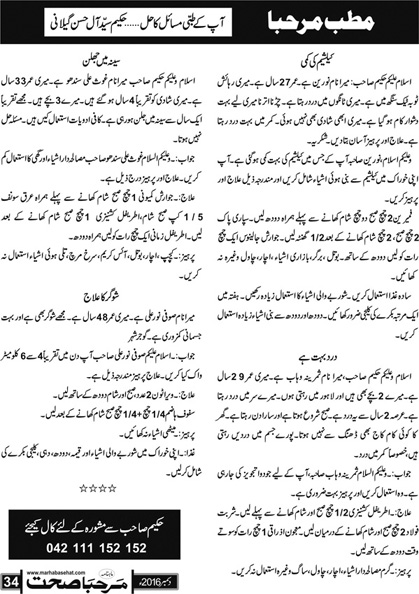 مطب مرحبا
آپ کے طبی مسائل کا حل ..... حکیم سیّد آل حسن گیلانی
کیلشیم کی کمی
اسلام علیکم حکیم صاحب: میرا نام نورین ہے۔ میری عمر 27 سال ہے۔ میری رہائش
ٹوبہ ٹیک سنگھ میں ہے۔ میری ٹانگوں میں درد رہتا ہے۔ چڑنا اترنا میرے لیے بہت
دشوار کام ہو گیا ہے۔ میری ابھی شادی بھی نہیں ہوئی۔ کمر میں بہت درد رہتا
ہے۔ علاج اور پرہیز آسان بتا دیں۔ شکریہ۔
جواب: وعلیکم اسلام نورین صاحبہ آپ کے جس میں کیلشیم کی بہت کمی ہو گئی ہے۔ آپ
اپنی خوراک میں کیلشیم سے بنی ہوئی اشیاء شامل کریں اور مندرجہ ذیل علاج اور
پرہیز کریں۔
فیبرین 2 چمچ صبح دوپہر شام کھانے سے پہلے ہمراہ دودھ لیں۔ سپاری پاک
2 چمچ صبح دوپہر شام کھانے کے بعد 1/2 گھنٹہ لیں۔ جوارش جالینوس ایک چمچ
رات کو لیں دودھ کے ساتھ۔ بوتل، برگر، بازاری اشیاء، اچار، چاول وغیرہ نہ
کھائیں۔
سادہ غذا استعمال کریں۔ شوربے والی اشیاء کا استعمال زیادہ رکھیں۔ ہفتہ میں
ایک مرتبہ بکرے کی کلیجی ضرور کھائیں۔ دودھ اور دودھ سے بنی ہوئی اشیاء زیادہ استعمال
کریں۔
درد بہت ہے
اسلام علیکم حکیم صاحب، میرا نام ثمرینہ وہاب ہے۔ میری عمر 29 سال
ہے۔ میرے 2 بچے ہیں اور لاہور میں رہتی ہوں۔ میرے سر میں درد رہتا
ہے۔ عرصہ 2 سال سے یہ درد ہے صبح شروع ہوتا ہے اور سارا دن رہتا ہے۔ گھر
کا کوئی کام کاج بھی ڈھنگ سے نہیں ہوتا۔ پورے جسم میں دردیں رہتی
ہیں، خصوصاً کمر میں درد۔
جواب: وعلیکم السلام ثمرینہ وہاب صاحبہ، آپ کے لیے جو دوا تجویز کی جا رہی
ہے۔ وہ استعمال کریں اور پرہیز بہت ضروری ہے۔
علاج:۔ اطریفل کشنیزی 1/2 چمچ صبح اور شام کھانے سے پہلے لیں۔ شربت
فولاد 2 چمچ صبح اور شام کھانے کے درمیان لیں۔ معجون اذراقی 1 چمچ رات کو سوتے
وقت دودھ کے ساتھ۔
پرہیز: بوتل، اچار، تلی ہوئی اشیاء، چاول، ساگ وغیرہ استعمال نہ کریں۔
سینہ میں جلن
اسلام علیکم حکیم صاحب میرا نام غوث علی سندھو ہے۔ میری عمر 33 سال
ہے۔ میری شادی کو تقریباً 4 سال ہو گئے ہیں۔ میرے 3 بچے ہیں۔ مجھے تقریباً
ایک سال سے سینہ میں جلن ہو رہی ہے۔ کافی ادویات استعمال کیں ہیں۔ مسئلہ حل
نہیں ہوتا۔
جواب:۔ وعلیکم السلام غوث علی سندھو صاحب مصالحہ دار اشیاء اور گھی کا استعمال کم
کریں۔ علاج اور پرہیز درج ذیل ہے۔
علاج:۔ جوارش کمونی 1 چمچ صبح شام کھانے سے پہلے ہمراہ عرق سونف
1/5 کپ صبح شام، اطریفل کشنیزی 1 چمچ صبح شام کھانے کے بعد
لیں۔ اطریفل زمانی ایک چمچ رات کو لیں ہمراہ دودھ۔
پرہیز:۔ کیچپ، اچار، بوتل، آئس کریم، سرخ مرچ، تلی ہوئی اشیاء استعمال نہ
کریں۔
شوگر کا علاج
میرا نام صوفی نور علی ہے۔ میری عمر 48 سال ہے۔ مجھے شوگر بھی ہے اور بہت
جسمانی کمزوری ہے۔ گوجر شہر
جواب: اسلام علیکم صوفی نور علی صاحب آپ دن میں تقریباً 4 سے 6 کلومیٹر
واک کیا کریں۔ علاج پرہیز مندرجہ ذیل ہے۔
علاج:۔ ویرانون 2 عدد صبح اور شام دودھ کے ساتھ لیں۔
سفوف ہاضم 1/4 چمچ + 1/4 چمچ شام کھانے کے بعد لیں۔
پرہیز:۔ میٹھی اشیاء نہ کھائیں۔
غذا:۔ اپنی خوراک میں شوربے والی اشیاء اور قیمہ، دودھ، دہی، کلیجی بکرے کی
شامل کر لیں۔
☆☆☆☆
حکیم صاحب سے مشورہ کے لئے کال کیجئے
042 111 152 152
34
www.marhabasehat.com
ماہنامہ مرحبا صحت
دسمبر 2016ء